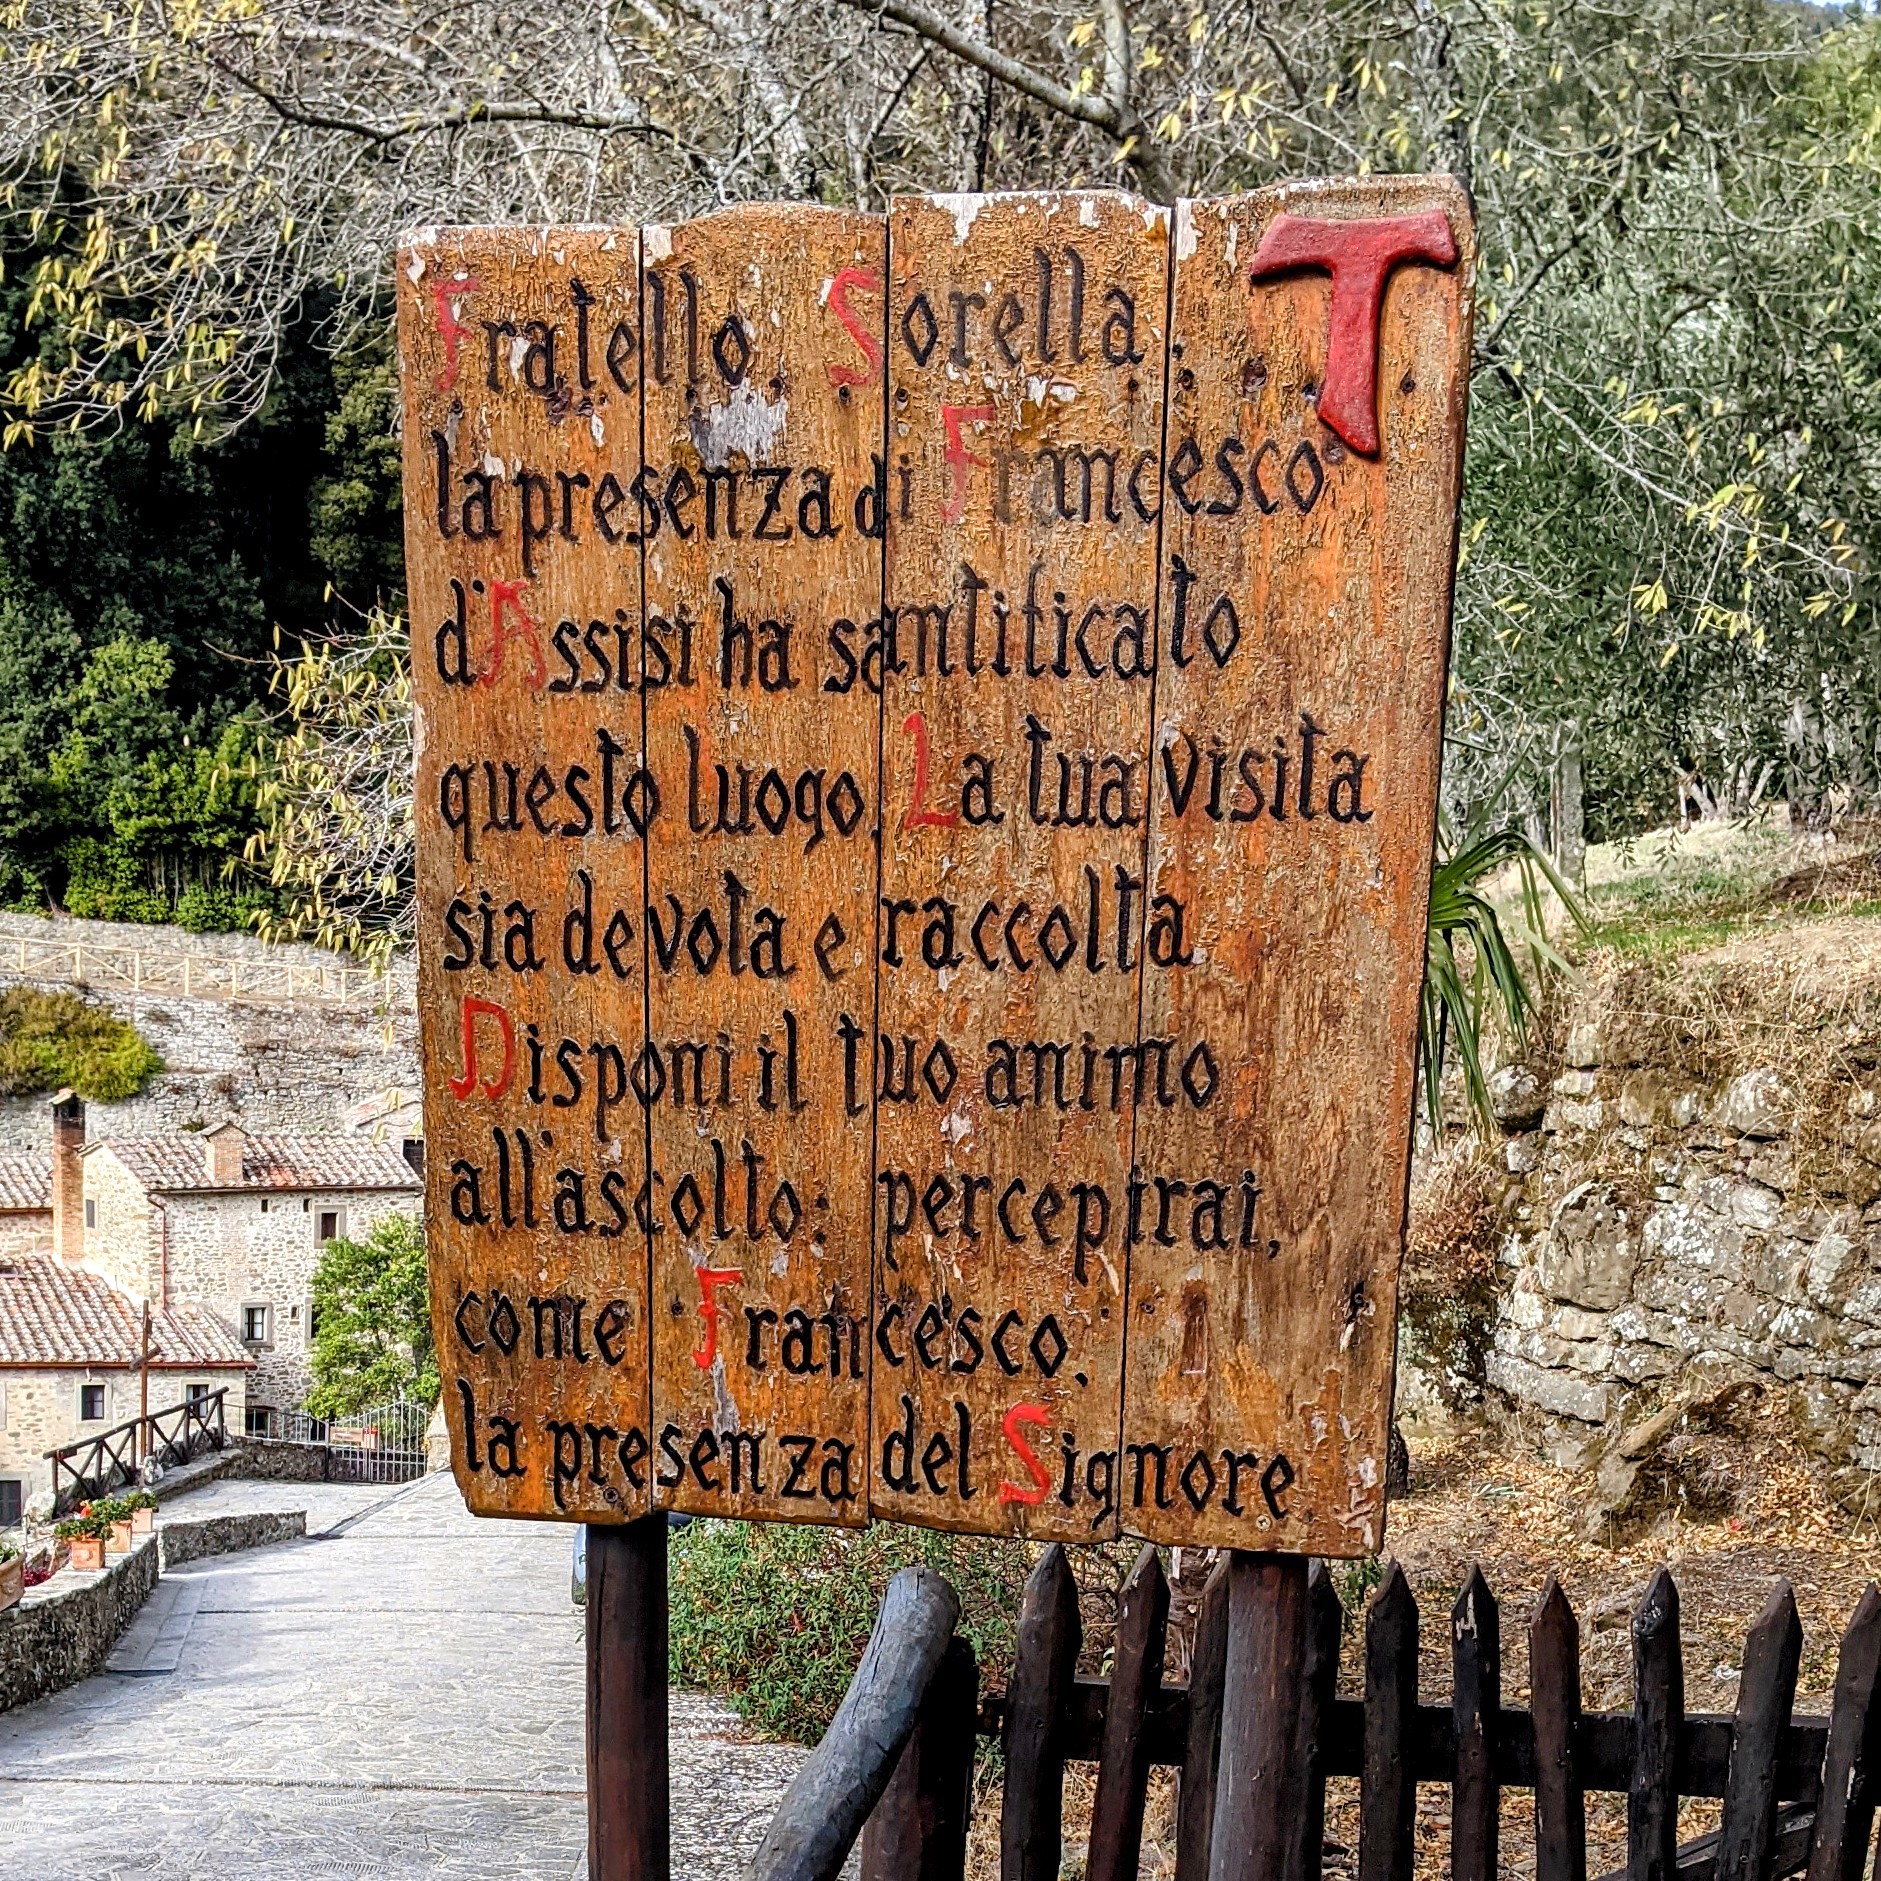 Fratello, Sorella:
la presenza di Francesco
d'Assisi ha santificato
questo luogo. La tua visita
sia devota e raccolta
Disponi il tuo animo
all'ascolto: percepirai,
come Francesco,
la presenza del Signore